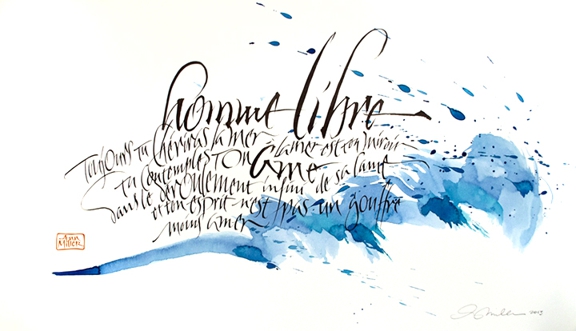 homme libre
Toujours tu chériras la mer la mer est ton miroir
tu contemples TON âme
dans le déroulement infini de sa lame
et ton esprit n'est pas un gouffre
moins amer
Ann
Miller